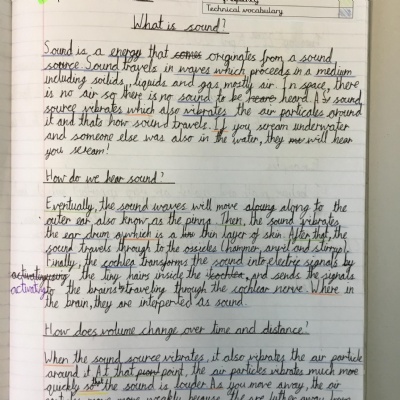 frequency
Technical vocabulary
What is sound?
Sound is a energy that comes originates from a sound
source. Sound travels in waves which proceeds in a medium
including soilids, liquids and gas mostly air. In space, there
is no air so there is no sound to be heard. A sound
source vibrates which also vibrates the air particales around
it and thats how sound travels. If you scream underwater
and someone else was also in the water, they will hear
you scream!
How do we hear sound?
Eventually, the sound waves will move along to the
outer ear also know as the pinna. Then, the sound vibrates
the ear drum which is a thin layer of skin. After that, the
sound travels through to the ossicles (hammer, anvil and stirrup).
Finally, the cochlea transforms the sound into electric signals by
activating the tiny hairs inside the cochlea, and sends the signals
activates to the brain traveling through the cochlear nerve. Where in
the brain, they are interperted as sound.
How does volume change over time and distance?
When the sound source vibrates, it also vibrates the air particle
around it. At that point, the air particles vibrates much more
quickly so the sound is louder. As you move away, the air
move more weakly because they are futher away from